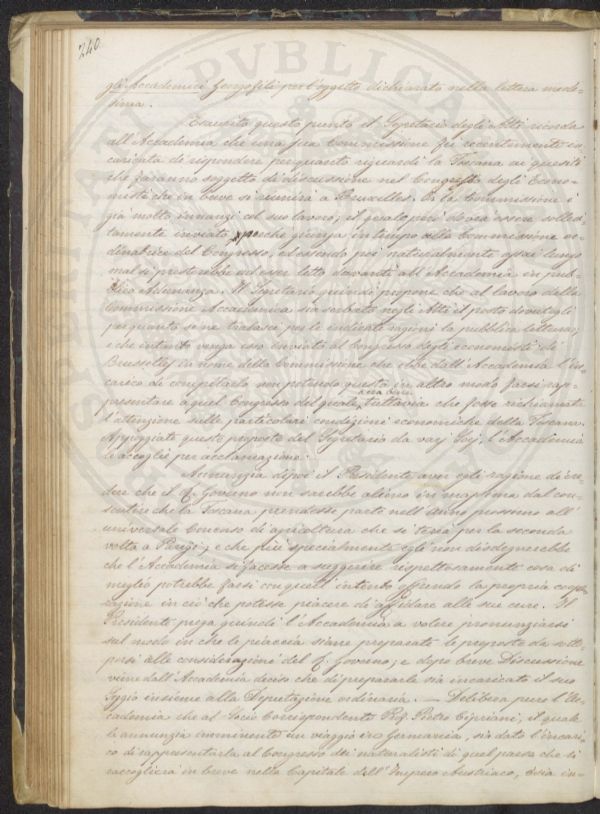 240.
gli Accademici Georgofili per l'oggetto dichiarato nella lettera mede-
sima.
Esaurito questo punto il Segretario degli Atti ricorda
all'Accademia che una sua Commissione fu recentemente in-
caricata di rispondere per quanto riguardi la Toscana ai quesiti
che faranno soggetto di discussione nel Congresso degli Econo-
misti che in breve si riunirà a Bruxelles. Or la Commissione è
già molto innanzi col suo lavoro, il quale però dovrà essere solleci-
tamente inviato perchè giunga in tempo alla Commissione or-
dinatrice del Congresso, ed essendo poi naturalmente assai lungo
mal si presterebbe ad esser letto davanti all'Accademia in pub-
blica Adunanza. Il Segretario quindi propone che al lavoro della
Commissione Accademica sia serbato negli Atti il posto dovutogli
per quanto se ne tralasci per le indicate ragioni la pubblica lettura;
e che intanto venga esso inviato al Congresso degli economisti di
Brusselles in nome della Commissione che ebbe dall'Accademia l'in-
carico di compilarlo non potendo questa in altro modo farsi rap-
presentare a quel Congresso del quale tuttavia che fosse richiamata
l'attenzione sulle particolari condizioni economiche della Toscana.
Appoggiate queste proposte del Segretario da varj Socj, l'Accademia
le accoglie per acclamazione.
Annunzia dipoi il Presidente aver egli ragione di cre-
dere che il R. Governo non sarebbe alieno in massima dal con-
sentire che la Toscana prendesse parte nell'anno prossimo all'
universale Concorso di agricoltura che si terrà per la seconda
volta a Parigi; e che più specialmente egli non disdegnerebbe
che l'Accademia si facesse a suggerire rispettosamente cosa di
meglio potrebbe farsi con quell'intento offrendo la propria coope-
razione in ciò che potesse piacere di affidare alle sue cure. Il
Presidente prega quindi l'Accademia a volere pronunziarsi
sul modo in che le piaccia siano preparate le proposte da sotto-
porsi alle considerazioni del R. Governo; e dopo breve Discussione
viene dall'Accademia deciso che di prepararle sia incaricato il suo
Seggio insieme alla Deputazione ordinaria. — Delibera pure l'Ac-
cademia che al Socio Corrispondente Prof. Pietro Cipriani, il quale
le annunzia imminente un viaggio in Germania, sia dato l'incari-
co di rappresentarla al Congresso dei naturalisti di quel paese che si
raccoglierà in breve nella Capitale dell'Impero Austriaco, ossia in-